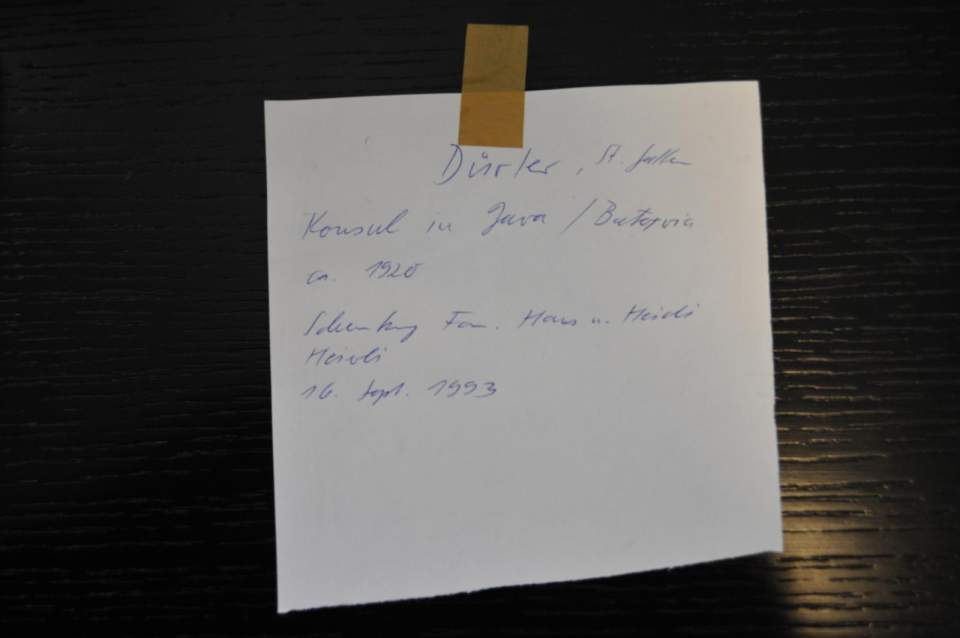 Dürler, St. Gallen
Konsul in Java / Batavia
ca. 1920
Schenkung Fam. Hans u. Heidi
16. Sept. 1993